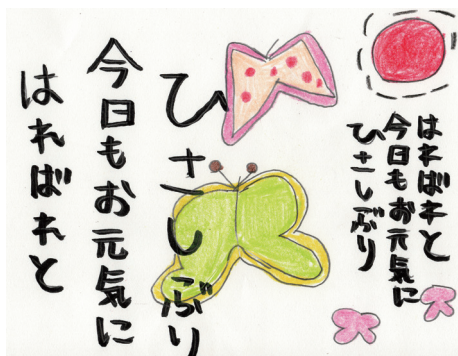 はればれと
今日もお元気に
ひさしぶり
ひさしぶり
今日もお元気に
はればれと